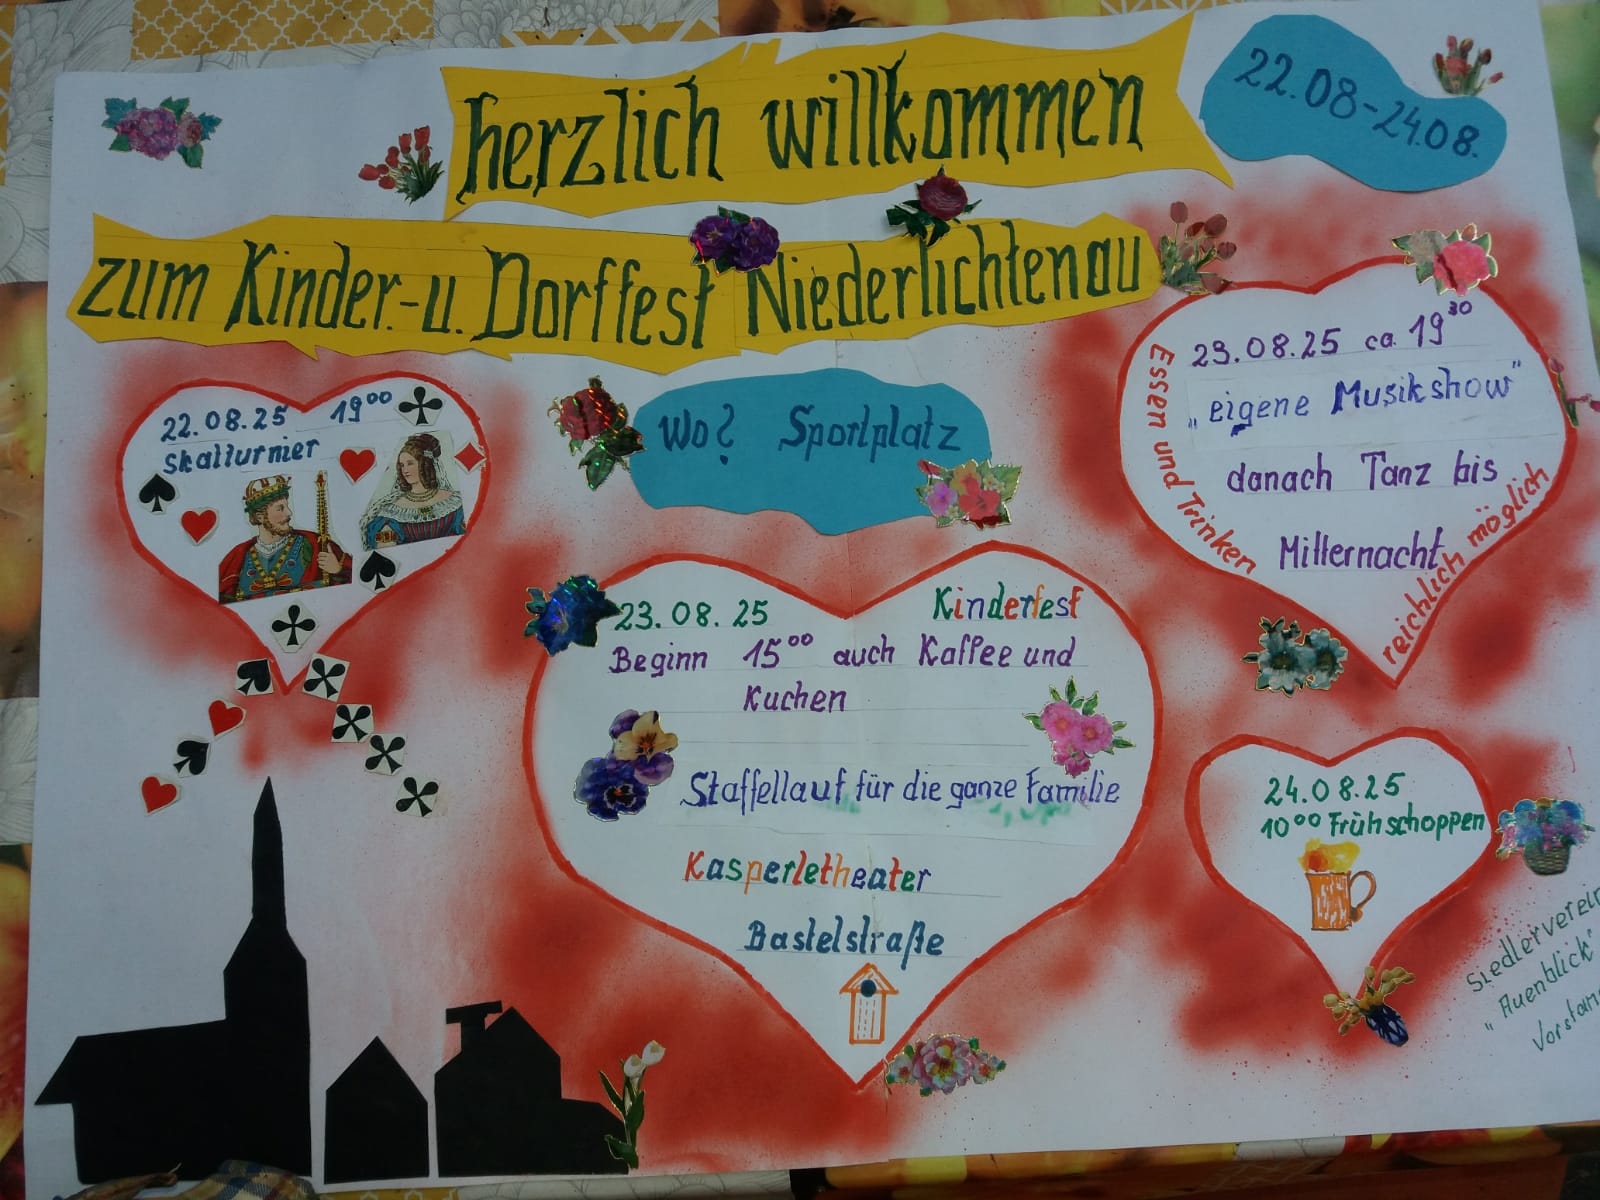 herzlich willkommen
22.08-24.08.
zum Kinder.-u. Dorffest Niederlichtenau
22.08.25 19⁰⁰
Skatturnier
Wo? Sportplatz
23.08.25 ca 19³⁰
„eigene Musikshow"
danach Tanz bis
Mitternacht
Essen und Trinken
reichlich möglich
23.08.25 Kinderfest
Beginn 15⁰⁰ auch Kaffee und
Kuchen
Staffellauf für die ganze Familie
Kasperletheater
Bastelstraße
24.08.25
10⁰⁰ Frühschoppen
Siedlerverein
"Auenblick"